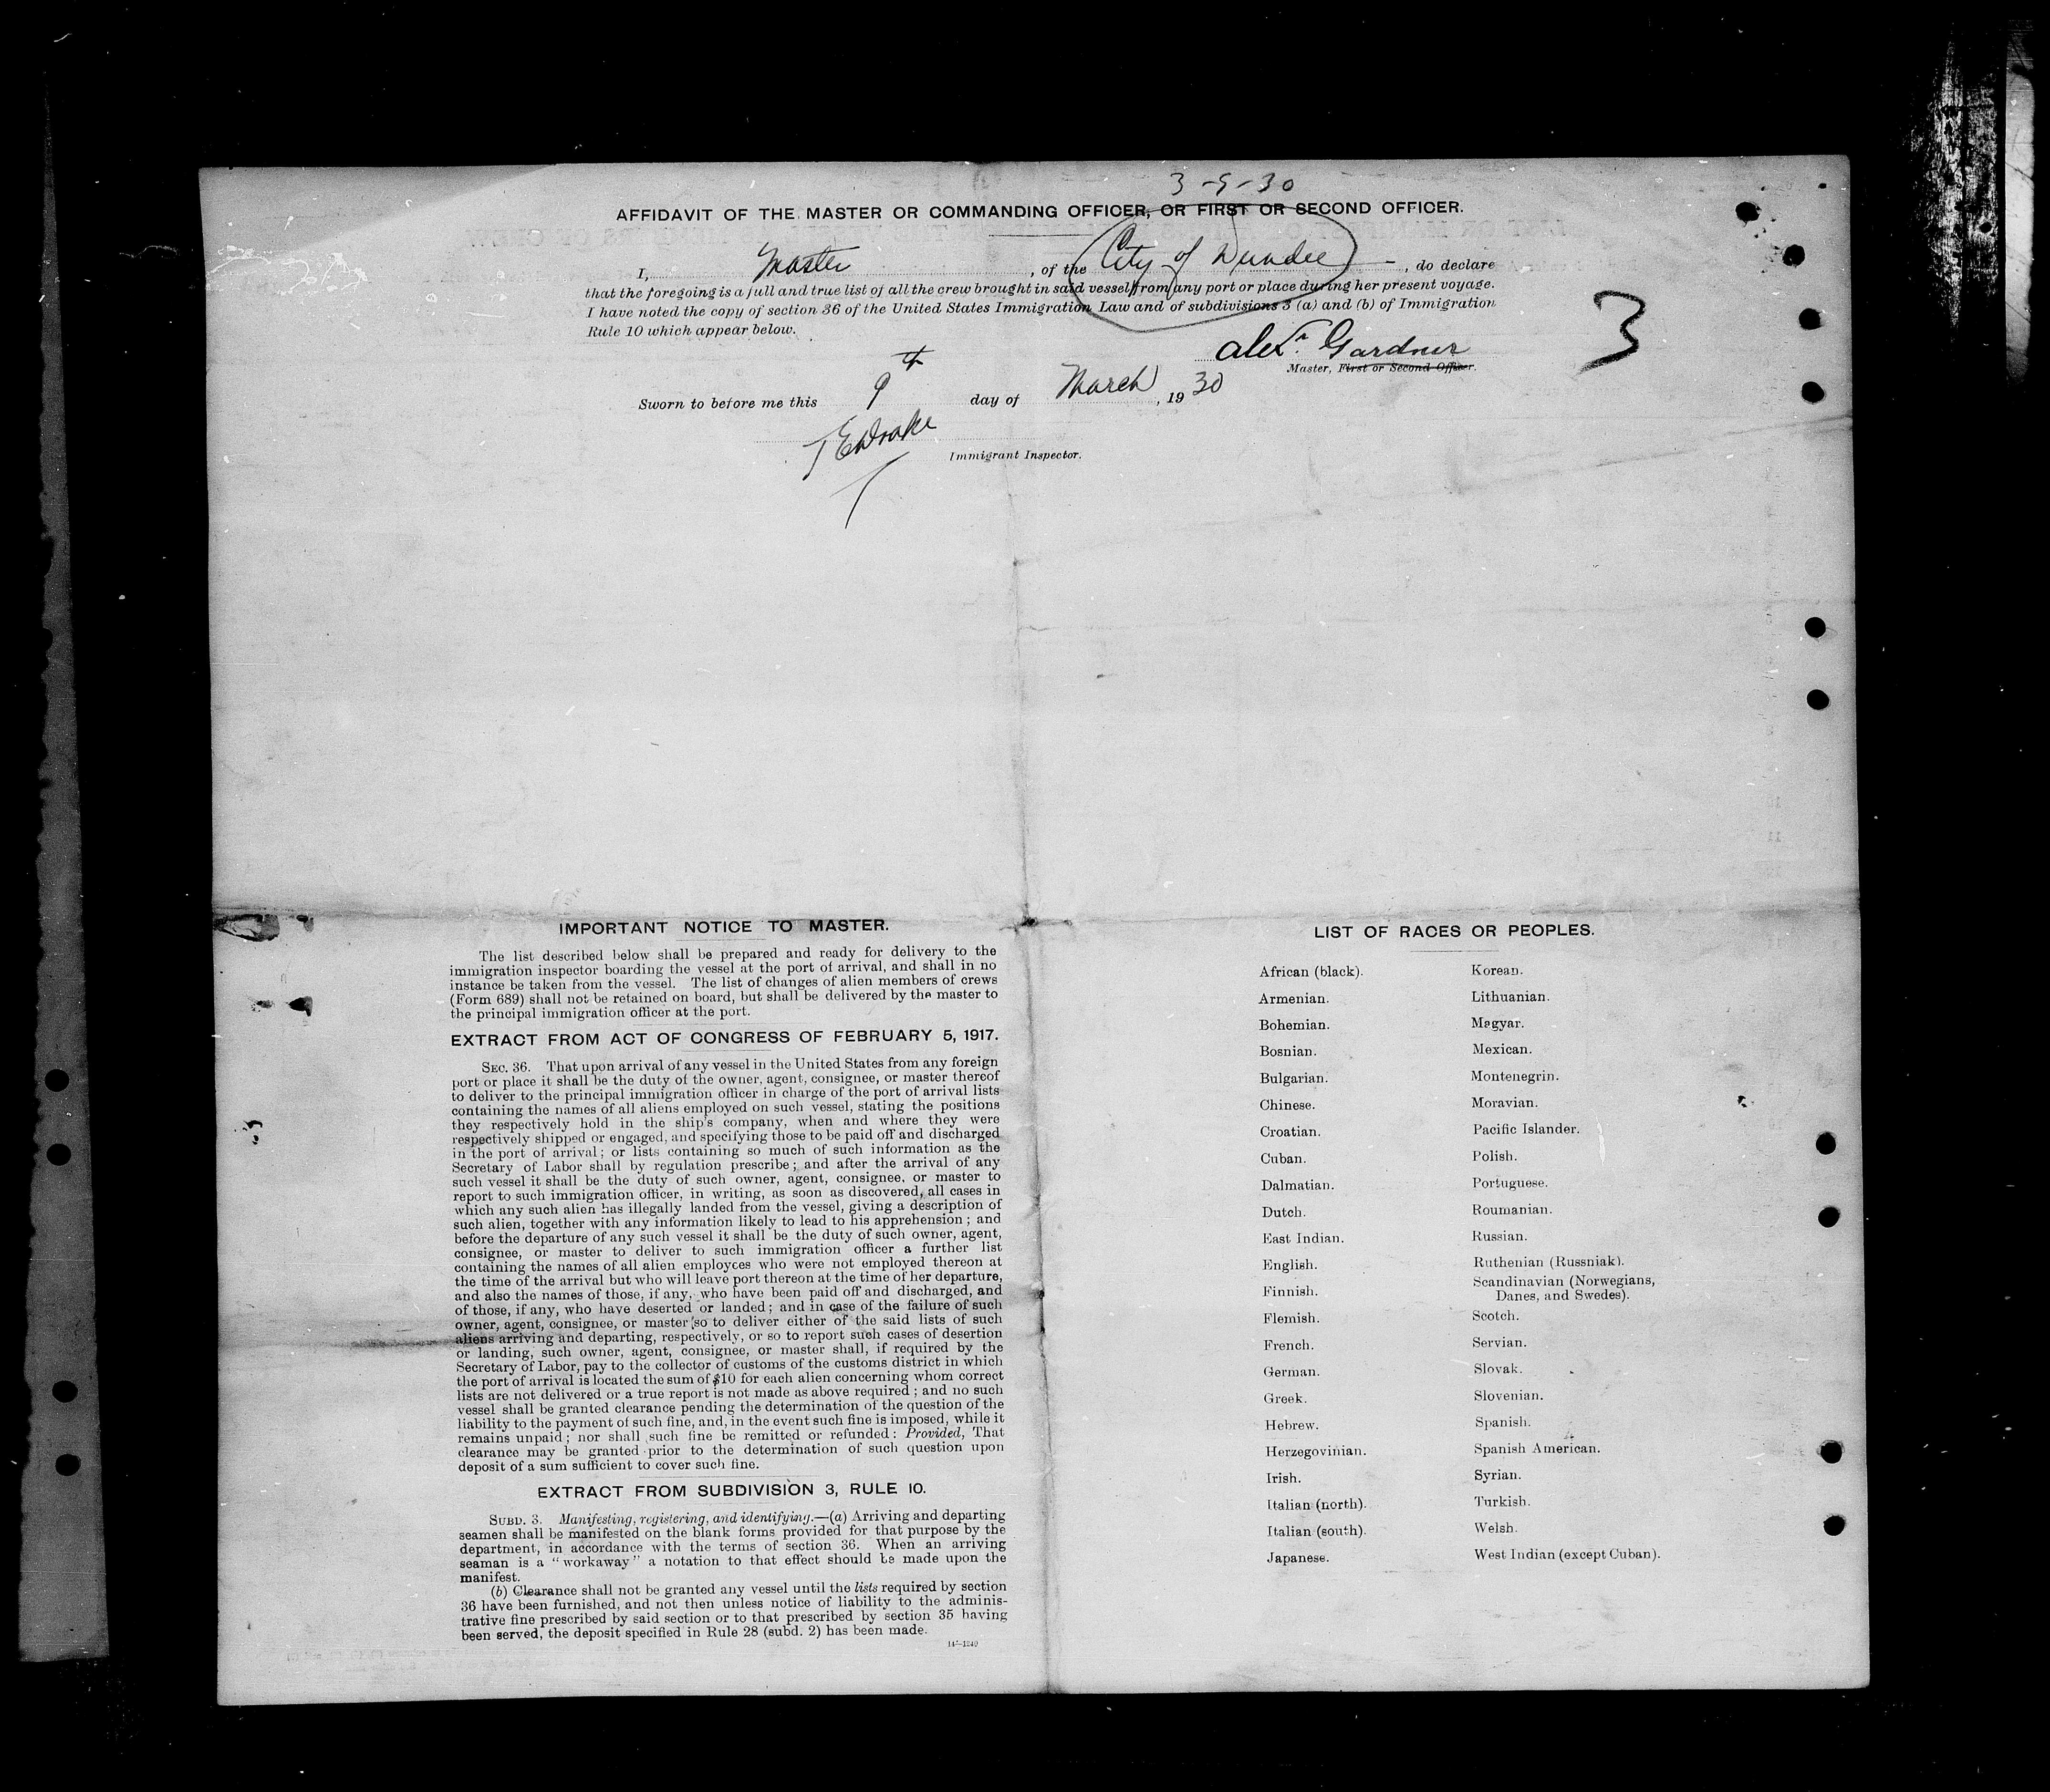 3-9-30
AFFIDAVIT OF THE MASTER OR COMMANDING OFFICER, OR FIRST OR SECOND OFFICER.
I, Master, of the City of Dundee, do declare
that the foregoing is a full and true list of all the crew brought in said vessel from any port or place during her present voyage.
I have noted the copy of section 36 of the United States Immigration Law and of subdivisions 3 (a) and (b) of Immigration
Rule 10 which appear below.
3
Alexr. Gardner
Master, First or Second Officer.
Sworn to before me this 9th day of March, 1930
T E Drake
Immigrant Inspector.
IMPORTANT NOTICE TO MASTER.
The list described below shall be prepared and ready for delivery to the
immigration inspector boarding the vessel at the port of arrival, and shall in no
instance be taken from the vessel. The list of changes of alien members of crews
(Form 689) shall not be retained on board, but shall be delivered by the master to
the principal immigration officer at the port.
EXTRACT FROM ACT OF CONGRESS OF FEBRUARY 5, 1917.
SEC. 36. That upon arrival of any vessel in the United States from any foreign
port or place it shall be the duty of the owner, agent, consignee, or master thereof
to deliver to the principal immigration officer in charge of the port of arrival lists
containing the names of all aliens employed on such vessel, stating the positions
they respectively hold in the ship's company, when and where they were
respectively shipped or engaged, and specifying those to be paid off and discharged
in the port of arrival; or lists containing so much of such information as the
Secretary of Labor shall by regulation prescribe; and after the arrival of any
such vessel it shall be the duty of such owner, agent, consignee, or master to
report to such immigration officer, in writing, as soon as discovered, all cases in
which any such alien has illegally landed from the vessel, giving a description of
such alien, together with any information likely to lead to his apprehension; and
before the departure of any such vessel it shall be the duty of such owner, agent,
consignee, or master to deliver to such immigration officer a further list
containing the names of all alien employees who were not employed thereon at
the time of the arrival but who will leave port thereon at the time of her departure,
and also the names of those, if any, who have been paid off and discharged, and
of those, if any, who have deserted or landed; and in case of the failure of such
owner, agent, consignee, or master so to deliver either of the said lists of such
aliens arriving and departing, respectively, or so to report such cases of desertion
or landing, such owner, agent, consignee, or master shall, if required by the
Secretary of Labor, pay to the collector of customs of the customs district in which
the port of arrival is located the sum of $10 for each alien concerning whom correct
lists are not delivered or a true report is not made as above required; and no such
vessel shall be granted clearance pending the determination of the question of the
liability to the payment of such fine, and, in the event such fine is imposed, while it
remains unpaid; nor shall such fine be remitted or refunded: Provided, That
clearance may be granted prior to the determination of such question upon
deposit of a sum sufficient to cover such fine.
EXTRACT FROM SUBDIVISION 3, RULE 10.
SUBD. 3. Manifesting, registering, and identifying.—(a) Arriving and departing
seamen shall be manifested on the blank forms provided for that purpose by the
department, in accordance with the terms of section 36. When an arriving
seaman is a "workaway" a notation to that effect should be made upon the
manifest.
(b) Clearance shall not be granted any vessel until the lists required by section
36 have been furnished, and not then unless notice of liability to the adminis-
trative fine prescribed by said section or to that prescribed by section 35 having
been served, the deposit specified in Rule 28 (subd. 2) has been made.
14—1240
LIST OF RACES OR PEOPLES.
African (black).
Armenian.
Bohemian.
Bosnian.
Bulgarian.
Chinese.
Croatian.
Cuban.
Dalmatian.
Dutch.
East Indian.
English.
Finnish.
Flemish.
French.
German.
Greek.
Hebrew.
Herzegovinian.
Irish.
Italian (north).
Italian (south).
Japanese.
Korean.
Lithuanian.
Magyar.
Mexican.
Montenegrin.
Moravian.
Pacific Islander.
Polish.
Portuguese.
Roumanian.
Russian.
Ruthenian (Russniak).
Scandinavian (Norwegians,
Danes, and Swedes).
Scotch.
Servian.
Slovak.
Slovenian.
Spanish.
Spanish American.
Syrian.
Turkish.
Welsh.
West Indian (except Cuban).